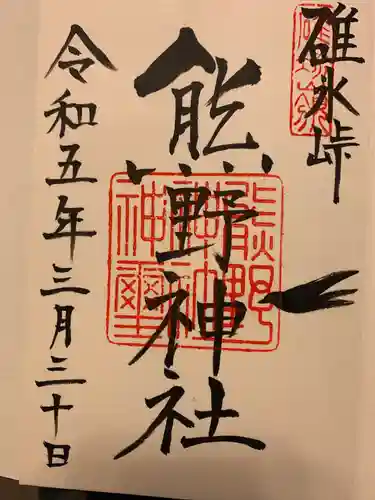 碓氷峠
熊野神社
熊野神社神璽
令和五年三月三十日